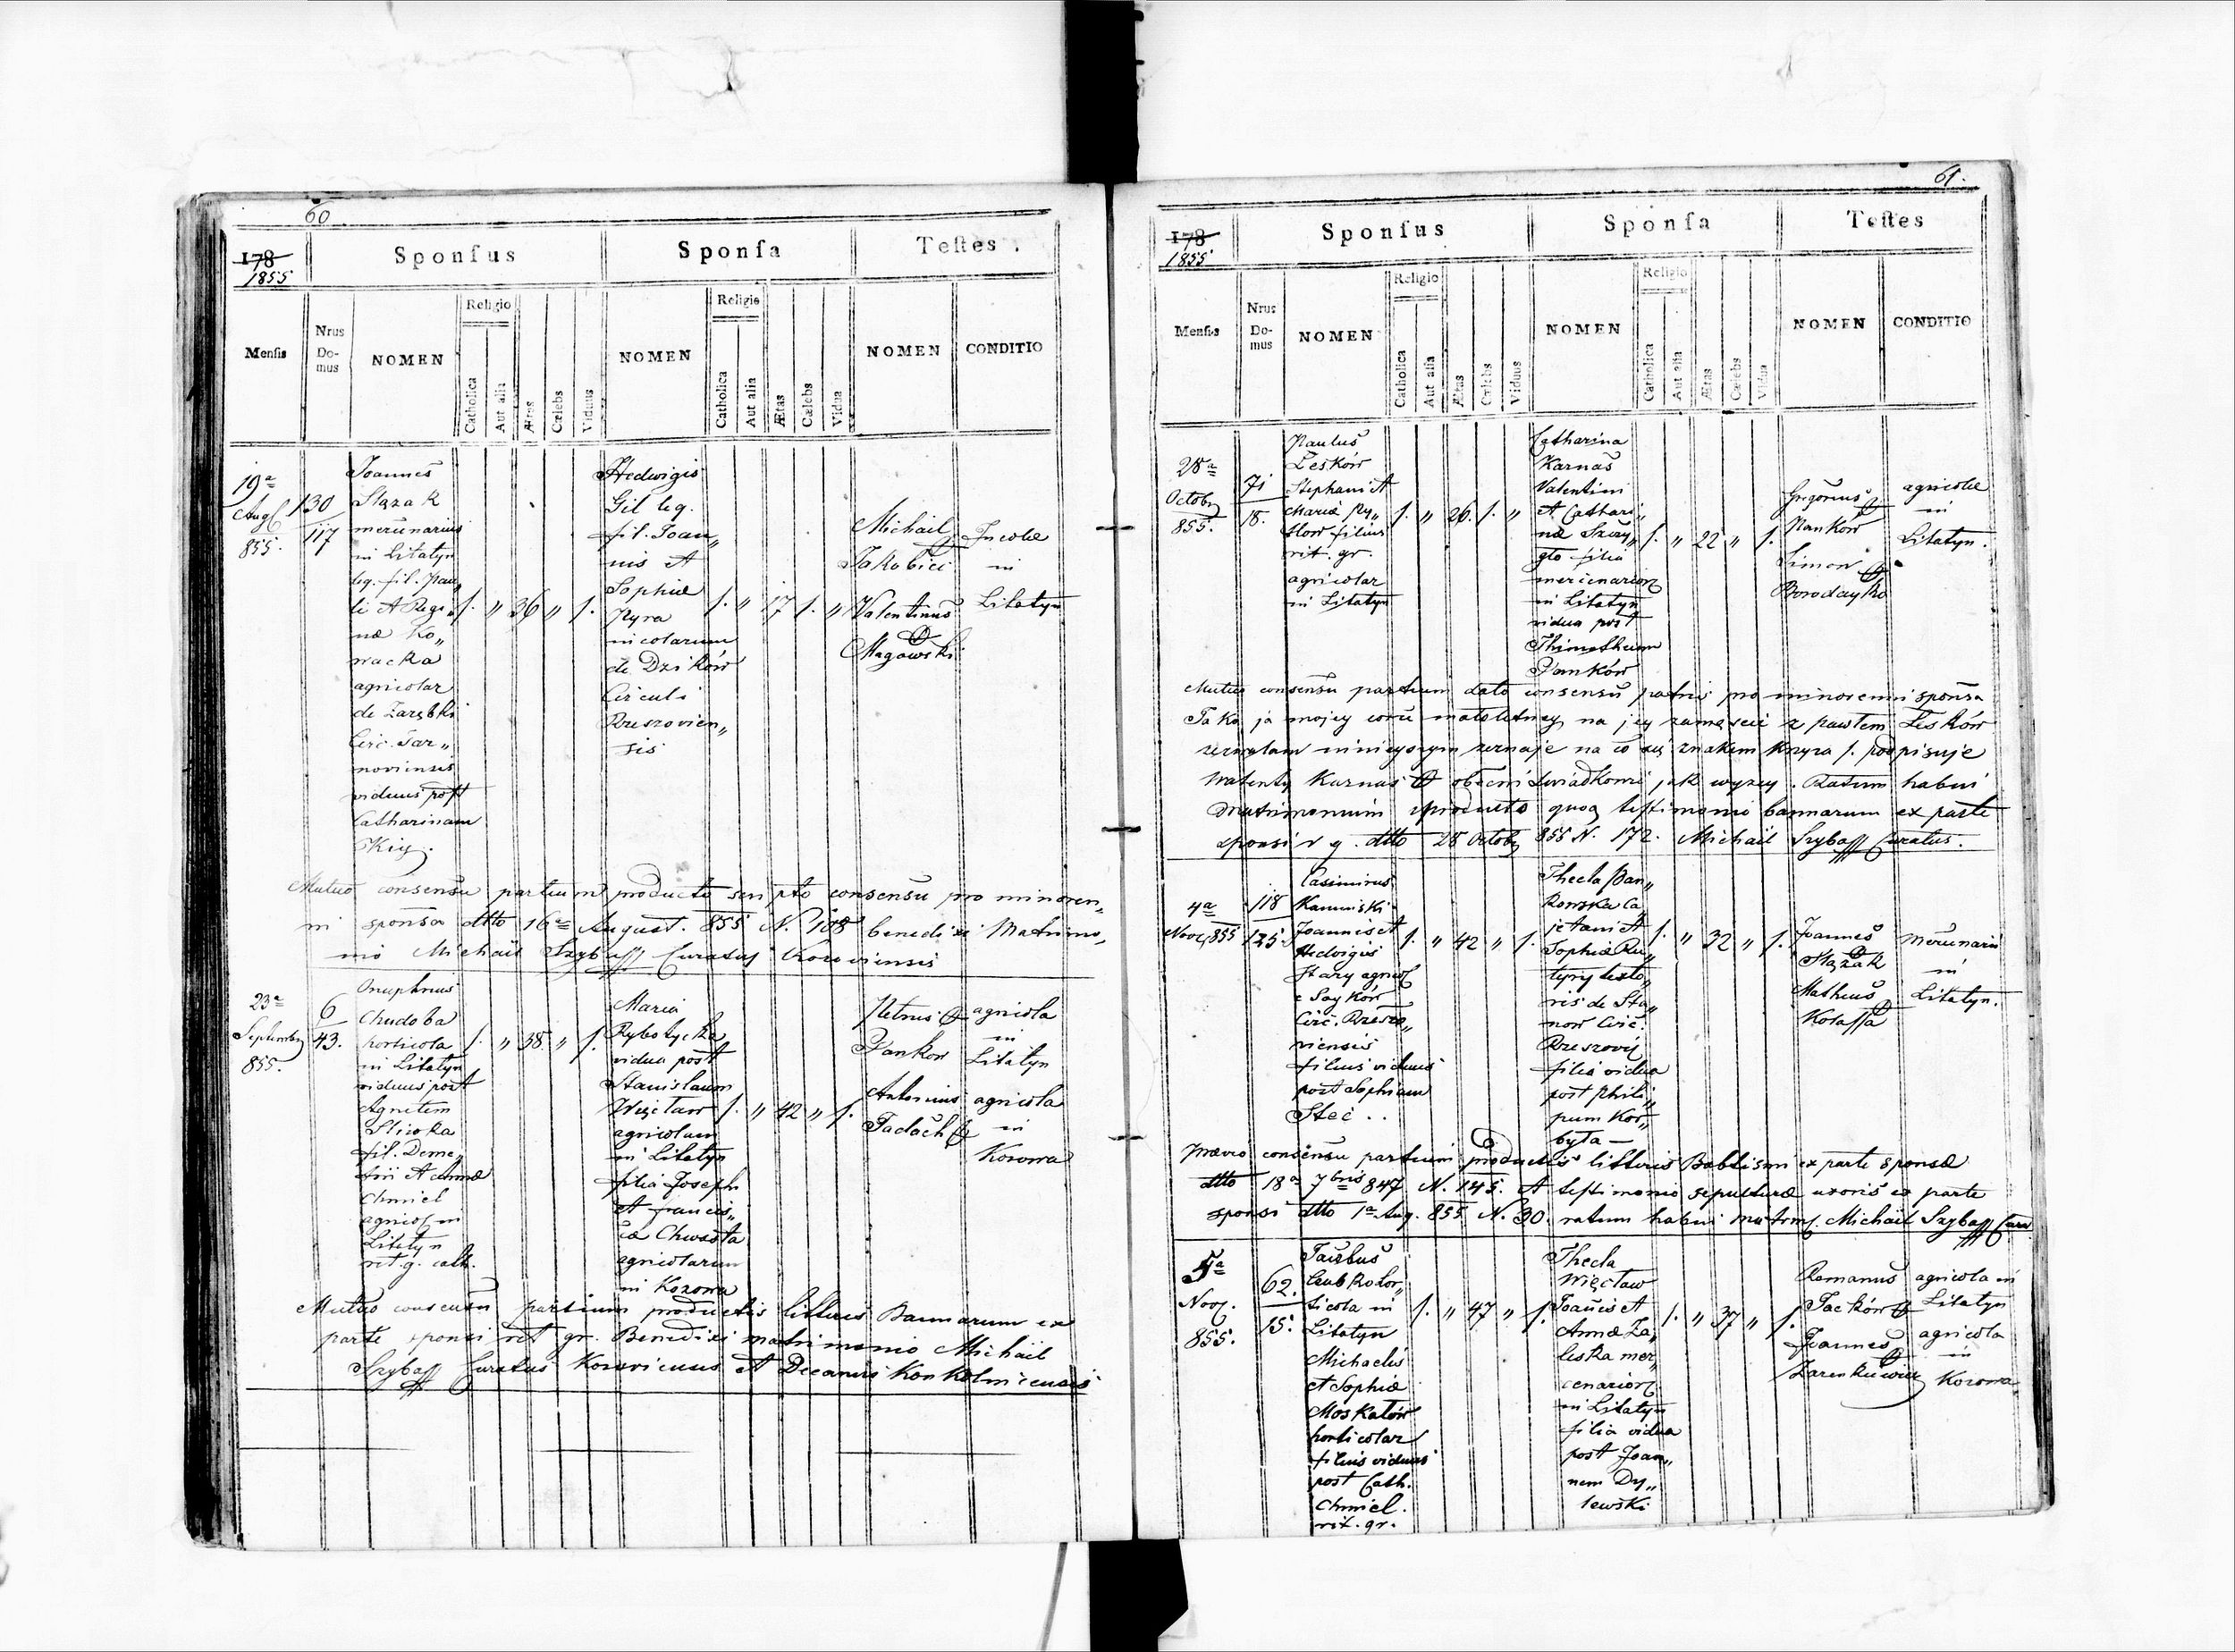 60
178
1855
Sponsus
Sponsa
Testes.
Mensis
Nrus Domus
NOMEN
Religio
Catholica
Aut alia
Ætas
Cœlebs
Viduus
NOMEN
Religio
Catholica
Aut alia
Ætas
Cœlebs
Vidua
NOMEN
CONDITIO
19a
Aug
855.
130
117
Joannes
Slązak
mercenarius
in Litatyn
leg. fil. Pau„
li et Regi„
næ Ko„
wacka
agricolar
de
Circ. Tar„
noviensis
viduus post
Catharinam
1. „ 36 „ 1.
Hedwigis
Gil leg.
fil. Joan„
nis et
Sophiæ
Pyra
incolarum
de Dzików
Circuli
Rzeszovien„
sis
1. „ 17 1. „
Michail
Valentinus
Magowski
Incolæ
in
Litatyn
Mutuo consensu partium producto scripto consensu pro minoren„
ni sponsa dtto 16a August. 855 N. 108 benedixi Matrimo„
nio Michail Szybaff Curatus Kozoviensis
23a
Septembr
855.
6
43.
Onuphrius
Chudoba
horticola
in Litatyn
viduus post
Agnetem
fil. Deme„
trii et Annæ
Chmiel
agricol in
Litatyn
rit g. cath.
1. „ 38. „ 1.
Maria
Rybotycka
vidua post
Stanislaum
Więcław
agricolam
in Litatyn
filia Joseph
et Francis„
cæ Chwasta
agricolarum
in Kozowa
1. „ 42 „ 1.
Petrus
Pankow
agricola
in
Litatyn
Antonius
Tadach
agricola
in
Kozowa
Mutuo consensu partium productis litteris Bannarum ex
parte sponsi rit gr. Benedixi matrimonio Michail
Szybaff Curatus Kozoviensis et Decanus Konkolnicensis
61.
178
1855
Sponsus
Sponsa
Testes
Mensis
Nrus Domus
NOMEN
Religio
Catholica
Aut alia
Ætas
Cœlebs
Viduus
NOMEN
Religio
Catholica
Aut alia
Ætas
Cœlebs
Vidua
NOMEN
CONDITIO
28a
Octobr
855.
71
18.
Paulus
Leśków
Stephani et
Mariæ Py„
filius
rit. gr.
agricolar
in Litatyn
1. „ 26. 1. „
Catharina
Karnas
Valentini
et Cathari„
næ Szczy„
gło filia
mercenarior
in Litatyn
vidua post
Thimotheum
Pankow
1. „ 22 „ 1.
Gregorius
Pankow
Simon
Borodayko
agricolæ
in
Litatyn.
Mutuo consensu partium dato consensu patris pro minorenni sponsa
Jako ja mojey małoletney na jey zamęscie z Pawłem Leśków
zezwalam niniejszym zeznaję na co się znakiem krzyża podpisuję
Walenty Karnas obecni swiadkowie jak wyzey. Ratum habui
Matrimonium producto quoq testimonio bannarum ex parte
sponsi r g. dtto 28 Octobr 855 N. 172. Michail Szybaff Curatus.
4a
Novr 855
118
125.
Casimirus
Kamiński
Joannis et
Hedwigis
Stary agricol
e Soyków
Circ. Rzeszo„
viensis
filius viduus
post Sophiam
Stec . .
1. „ 42 „ 1.
Thecla Ban„
kowska Ca„
jetani et
Sophiæ Ru„
tyny texto„
ris de Sta„
now Circ.
Rzeszovi
filia vidua
post Phili„
pum Kor„
byta —
1. „ 32 „ 1.
Joannes
Slązak
Matheus
Kolassa
Mercenarii
in
Litatyn.
Prævio consensu partium productis litteris Babtismi ex parte sponsæ
dtto 18a 7bris 847 N. 145. et testimonio sepulturæ uxoris ex parte
sponsi dtto 1a Aug. 855 N. 30. ratum habui matrim. Michail Szybaff Cura
5a
Nov.
855.
62.
15.
hor„
ticola in
Litatyn
Michaelis
et Sophiæ
Moskalow
horticolar
filius viduus
post Cath.
Chmiel.
rit. gr.
1. „ 47 „ 1.
Thecla
Więcław
Joannis et
Annæ Za„
leska mer„
cenarior
in Litatyn
filia vidua
post Joan„
nem Dy„
lewski
1. „ 37 „ 1.
Romanus
Jacków
agricola in
Litatyn
Joannes
Zarenkiewicz
agricola
in
Kozowa